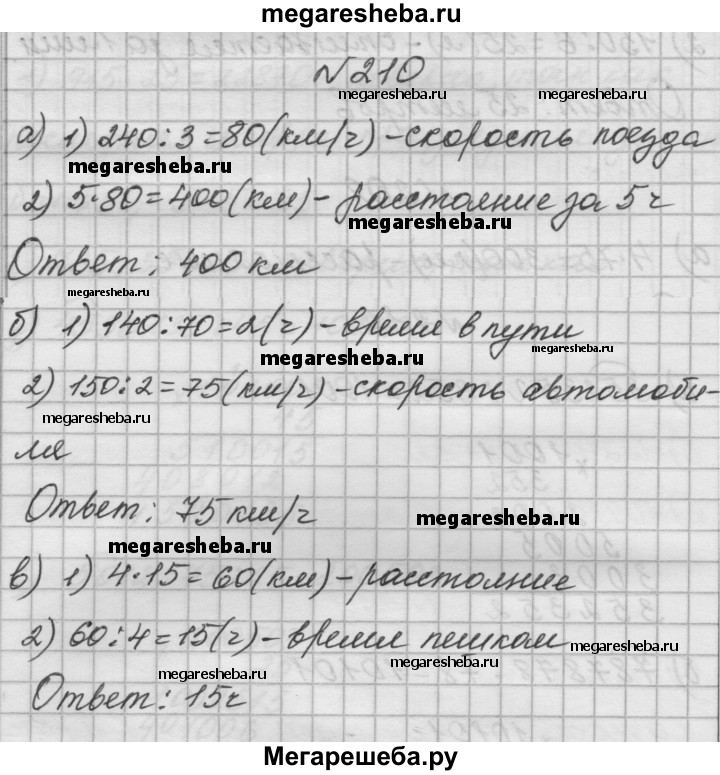 megaresheba.ru
№210
megaresheba.ru
а) 1) 240:3=80(км/ч)-скорость поезда
megaresheba.ru
megaresheba.ru
2) 5·80=400(км)-расстояние за 5ч
megaresheba.ru
Ответ: 400км
megaresheba.ru
б) 1) 140:70=2(ч)-время в пути
megaresheba.ru
megaresheba.ru
2) 150:2=75(км/ч)-скорость автомоби-
megaresheba.ru
ля
Ответ: 75км/ч
megaresheba.ru
megaresheba.ru
в) 1) 4·15=60(км)-расстояние
2) 60:4=15(ч)-время пешком
megaresheba.ru
megaresheba.ru
megaresheba.ru
Ответ: 15ч
megaresheba.ru
Мегарешеба.ру